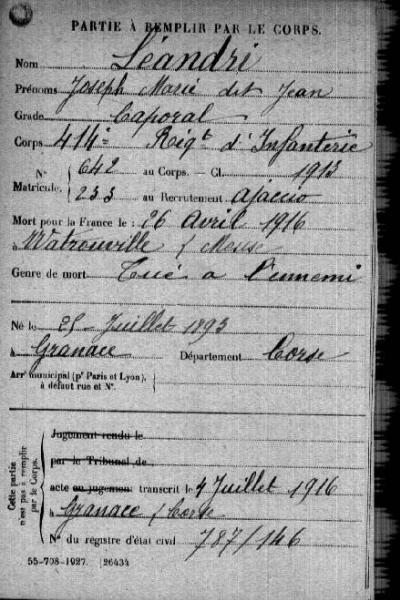 PARTIE À REMPLIR PAR LE CORPS.
Nom Léandri
Prénoms Joseph Marie dit Jean
Grade Caporal
Corps 414e Régt d'Infanterie
No 642 au Corps. — Cl. 1913
Matricule. 233 au Recrutement Ajaccio
Mort pour la France le : 26 Avril 1916
à Watronville / Meuse
Genre de mort Tué a l'ennemi
Né le 25 Juillet 1893
à Granace Département Corse
Arrt municipal (pr Paris et Lyon),
à défaut rue et No.
Cette partie n'est pas à remplir par le Corps.
Jugement rendu le
par le Tribunal de
acte ou jugement transcrit le 4 Juillet 1916
à Granace / Corse
No du registre d'état civil 787/146
55-708-1927. [26434]